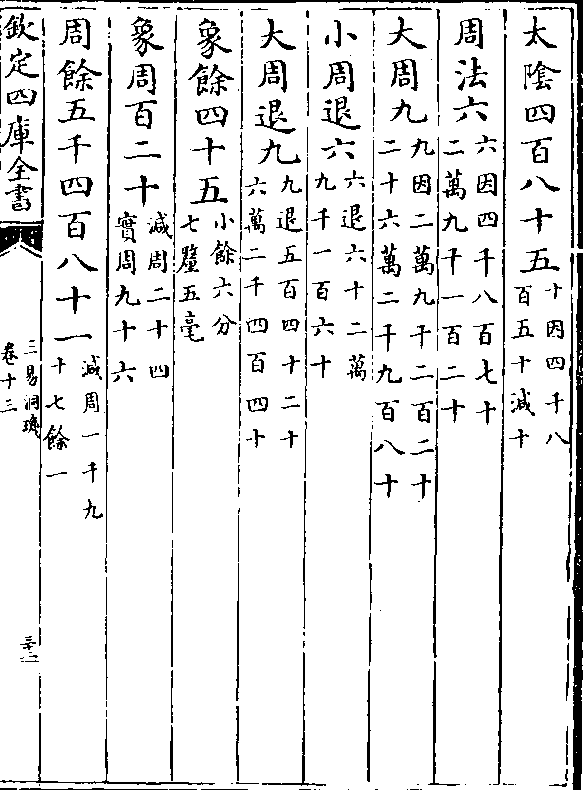 太陰四百八十五十因四千八百五十減十
周法六六因四千八百七十二萬九千一百二十
大周九九因二萬九千二百二十二十六萬二千九百八十
小周退六六退六十二萬九千一百六十
大周退九九退五百四十二十六萬二千四百四十
象餘四十五小餘六分七釐五毫
象周百二十減周二十四實周九十六
周餘五千四百八十一減周一千九十七餘一
欽定四庫全書
三易洞璣
卷十三